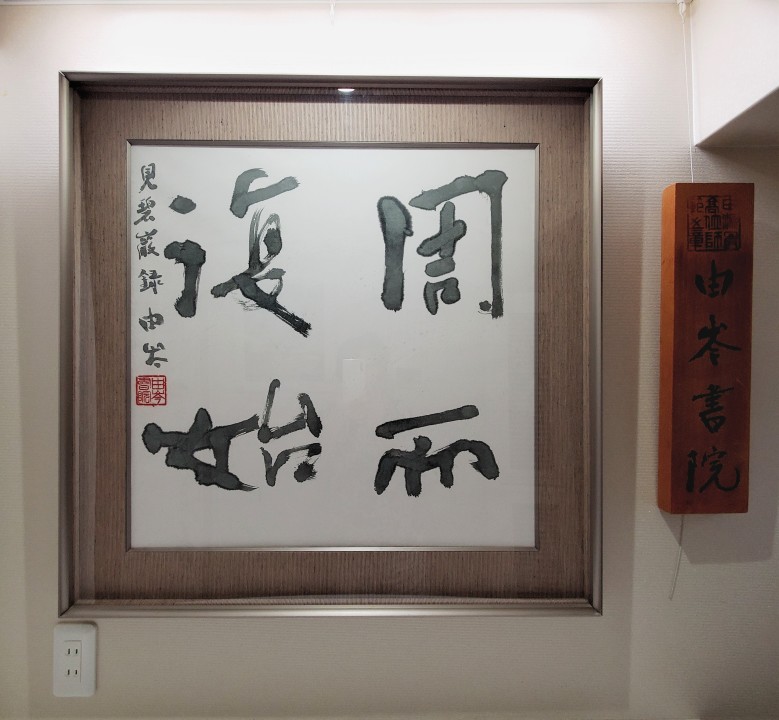 周而
復始
見碧巖録 由岑
由岑書院